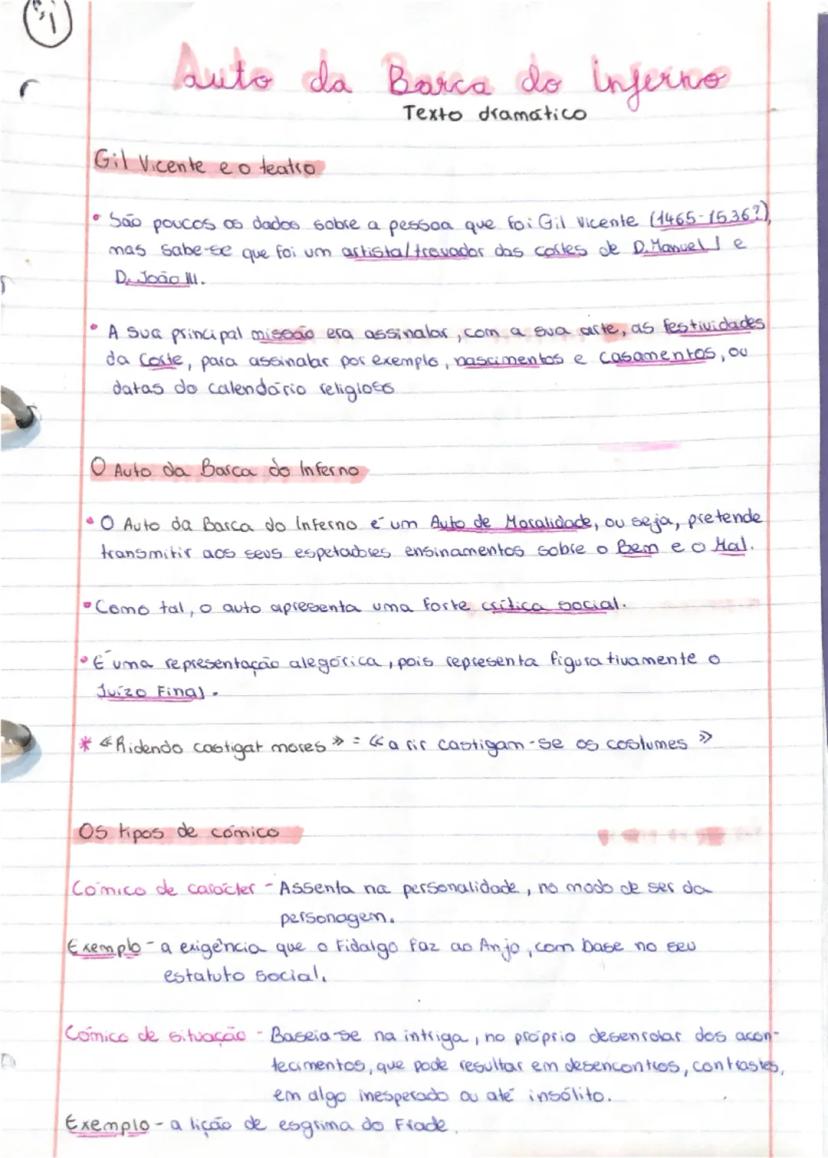 1
Auto da Barca do Inferno
Texto dramático
Gil Vicente e o teatro
• São poucos os dados sobre a pessoa que foi Gil Vicente (1465-1536?),
mas sabe-se que foi um artista/trovador das cortes de D. Manuel I e
D. João III.
• A sua principal missão era assinalar, com a sua arte, as festividades
da corte, para assinalar por exemplo, nascimentos e casamentos, ou
datas do calendário religioso
O Auto da Barca do Inferno
• O Auto da Barca do Inferno é um Auto de Moralidade, ou seja, pretende
transmitir aos seus espetadores ensinamentos sobre o Bem e o Mal.
• Como tal, o auto apresenta uma forte crítica social.
• É uma representação alegórica, pois representa figurativamente o
Juízo Final.
* «Ridendo castigat mores» = «a rir castigam-se os costumes»
Os tipos de cómico
Cómico de carácter - Assenta na personalidade, no modo de ser da
personagem.
Exemplo - a exigência que o Fidalgo faz ao Anjo, com base no seu
estatuto social.
Cómico de situação - Baseia-se na intriga, no próprio desenrolar dos acon-
tecimentos, que pode resultar em desencontros, contrastes,
em algo inesperado ou até insólito.
Exemplo - a lição de esgrima do Frade.